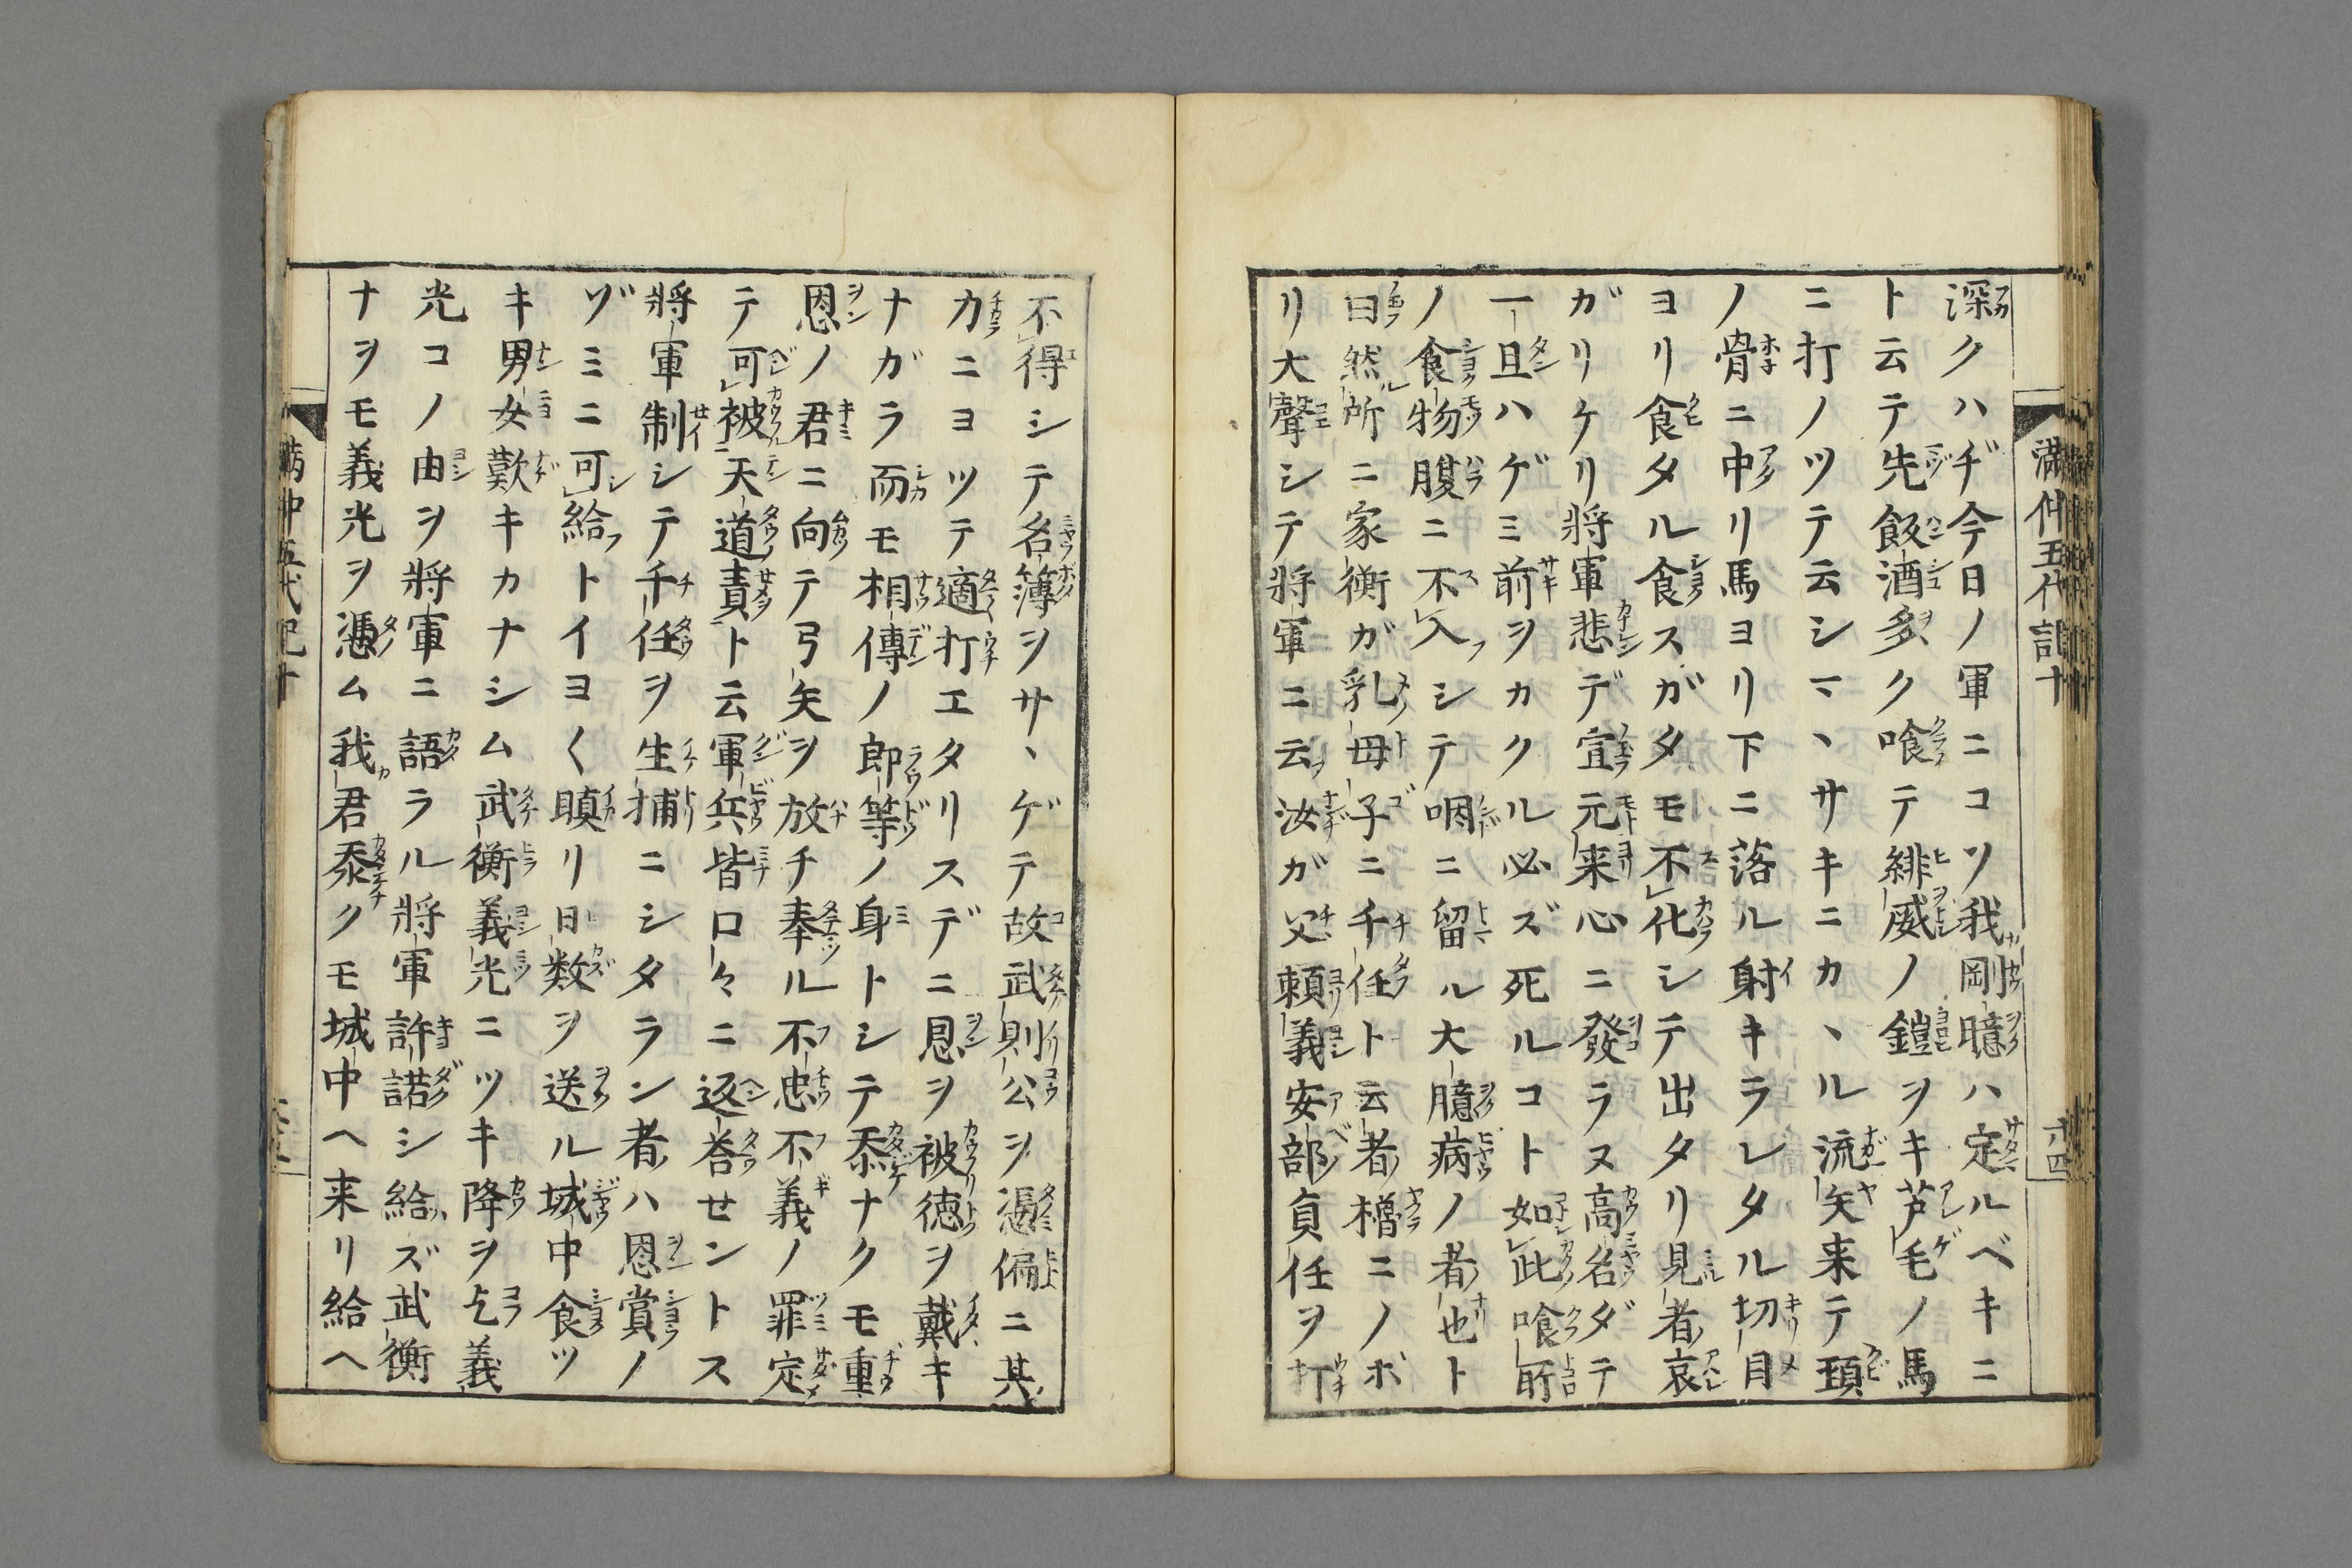 満仲五代記十
十四
深クハヂ今日ノ軍ニコソ我剛臆ハ定ルベキニ
ト云テ先飯酒多ク喰テ緋威ノ鎧ヲキ芦毛ノ馬
ニ打ノツテ云シマヽサキニカヽル流矢来テ頚
ノ骨ニ中リ馬ヨリ下ニ落ル射キラレタル切目
ヨリ食タル食スガタモ不化シテ出タリ見者哀
ガリケリ將軍悲デ宣元来心ニ發ラヌ高名ダテ
一旦ハゲミ前ヲカクル必ズ死ルコト如此喰所
ノ食物腹ニ不入シテ咽ニ留ル大臆病ノ者也ト
曰然所ニ家衡ガ乳母子ニ千任ト云者櫓ニノボ
リ大聲シテ將軍ニ云汝ガ父頼義安部貞任ヲ打
不得シテ名簿ヲサヽゲテ故武則公ヲ憑偏ニ其
カニヨツテ適打エタリスデニ恩ヲ被徳ヲ戴キ
ナガラ而モ相傳ノ郎等ノ身トシテ忝ナクモ重
恩ノ君ニ向テ弓矢ヲ放チ奉ル不忠不義ノ罪定
テ可被天道責ト云軍兵皆口々ニ返答セントス
將軍制シテ千任ヲ生捕ニシタラン者ハ恩賞ノ
ゾミニ可給トイヨ〱瞋リ日数ヲ送ル城中食ツ
キ男女歎キカナシム武衡義光ニツキ降ヲ乞義
光コノ由ヲ將軍ニ語ラル將軍許諾シ給ズ武衡
ナヲモ義光ヲ憑ム我君忝クモ城中ヘ来リ給ヘ
満仲五代記十